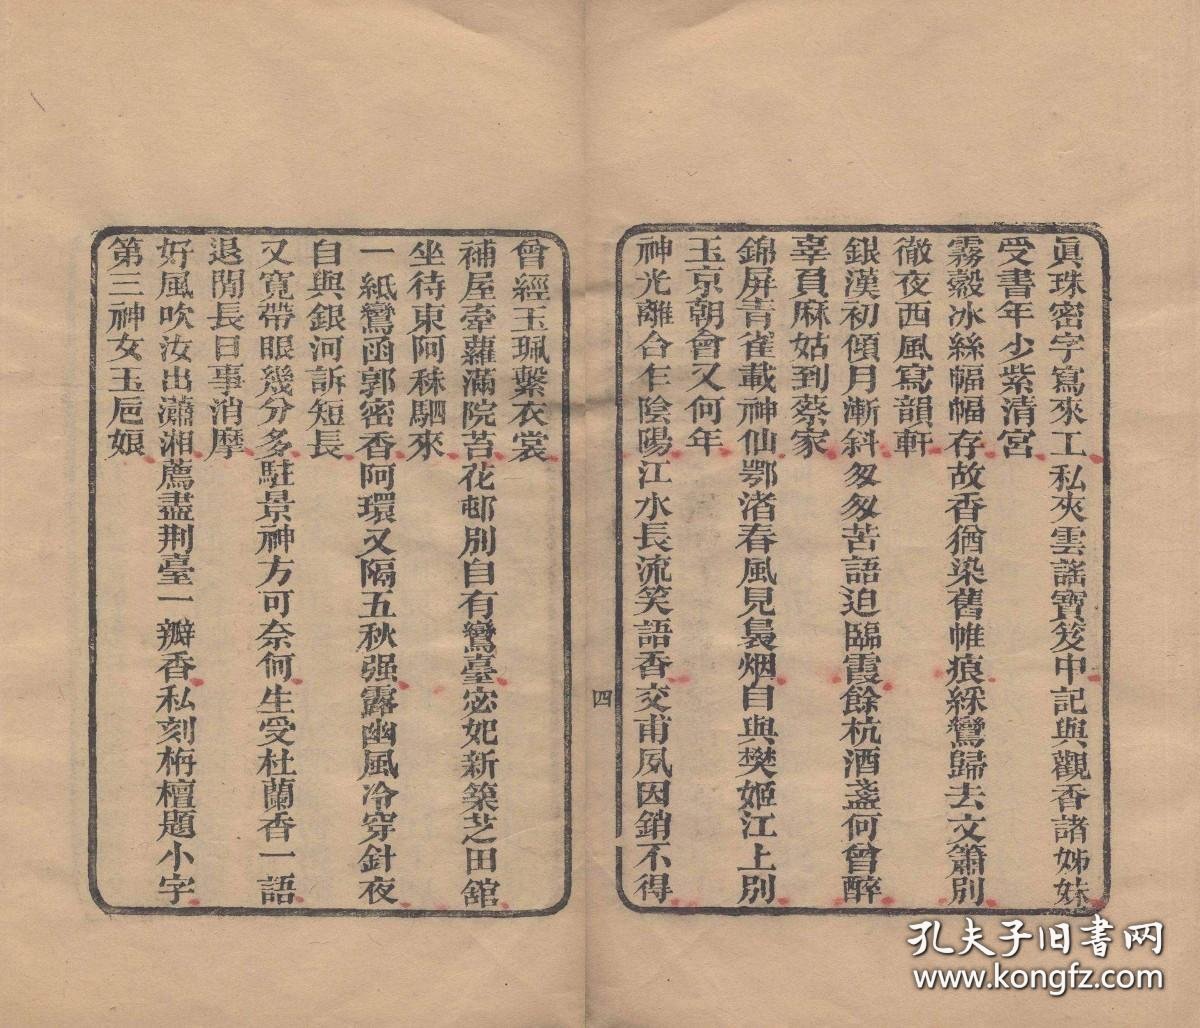 眞珠密字寫來工私夾雲謠寶笈中記與觀香諸姊妹
受書年少紫清宮
霧縠冰絲幅幅存故香猶染舊帷痕綵鸞歸去文簫別
徹夜西風寫韻軒
銀漢初傾月漸斜匆匆苦語迫臨霞餘杭酒盞何曾醉
辜負麻姑到蔡家
錦屏青雀載神仙鄂渚春風見曩烟自與樊姬江上別
玉京朝會又何年
神光離合乍陰陽江水長流笑語香交甫夙因銷不得
四
曾經玉珮繫衣裳
補屋牽蘿滿院苔花邨別自有鸞臺宓妃新築芝田舘
坐待東阿秣駟來
一紙鸞函郭密香阿環又隔五秋强露幽風冷穿針夜
自與銀河訴短長
又寬帶眼幾分多駐景神方可奈何生受杜蘭香一語
退閒長日事消摩
好風吹汝出瀟湘薦盡荆臺一瓣香私刻栴檀題小字
第三神女玉卮娘
孔夫子旧書网
www.kongfz.com